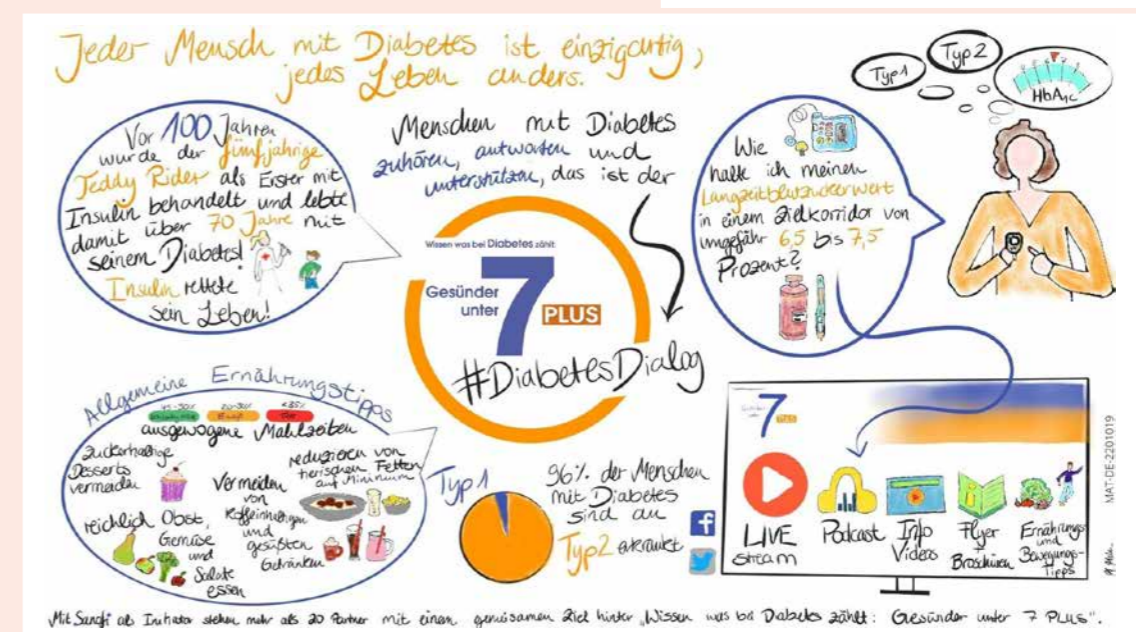 Jeder Mensch mit Diabetes ist einzigartig,
jedes Leben anders.
Vor 100 Jahren
wurde der fünfjährige
Teddy Rider als Erster mit
Insulin behandelt und lebte
damit über 70 Jahre mit
seinem Diabetes!
Insulin rettete
sein Leben!
Menschen mit Diabetes
zuhören, antworten und
unterstützen, das ist der
Wissen was bei Diabetes zählt:
Gesünder
unter
7
PLUS
#DiabetesDialog
Typ1
Typ2
HbA1c
Wie
halte ich meinen
Langzeitblutzuckerwert
in einem Zielkorridor von
ungefähr 6,5 bis 7,5
Prozent?
Allgemeine Ernährungstipps
ausgewogene Mahlzeiten
zuckerhaltige
Desserts
vermeiden
reichlich Obst,
Gemüse
und
Salate
essen
Vermeiden
von
Koffeinhaltigen
und
gesüßten
Getränken
reduzieren von
tierischen Fetten
auf Minimum
Typ1
96% der Menschen
mit Diabetes
sind an
Typ2 erkrankt
7
PLUS
LIVE
stream
Podcast
Info
Videos
Flyer
+
Broschüren
Ernährungs-
und
Bewegungs-
Tipps
MAT-DE-2201019
Mit Sanofi als Initiator stehen mehr als 20 Partner mit einem gemeinsamen Ziel hinter „Wissen was bei Diabetes zählt: Gesünder unter 7 PLUS".